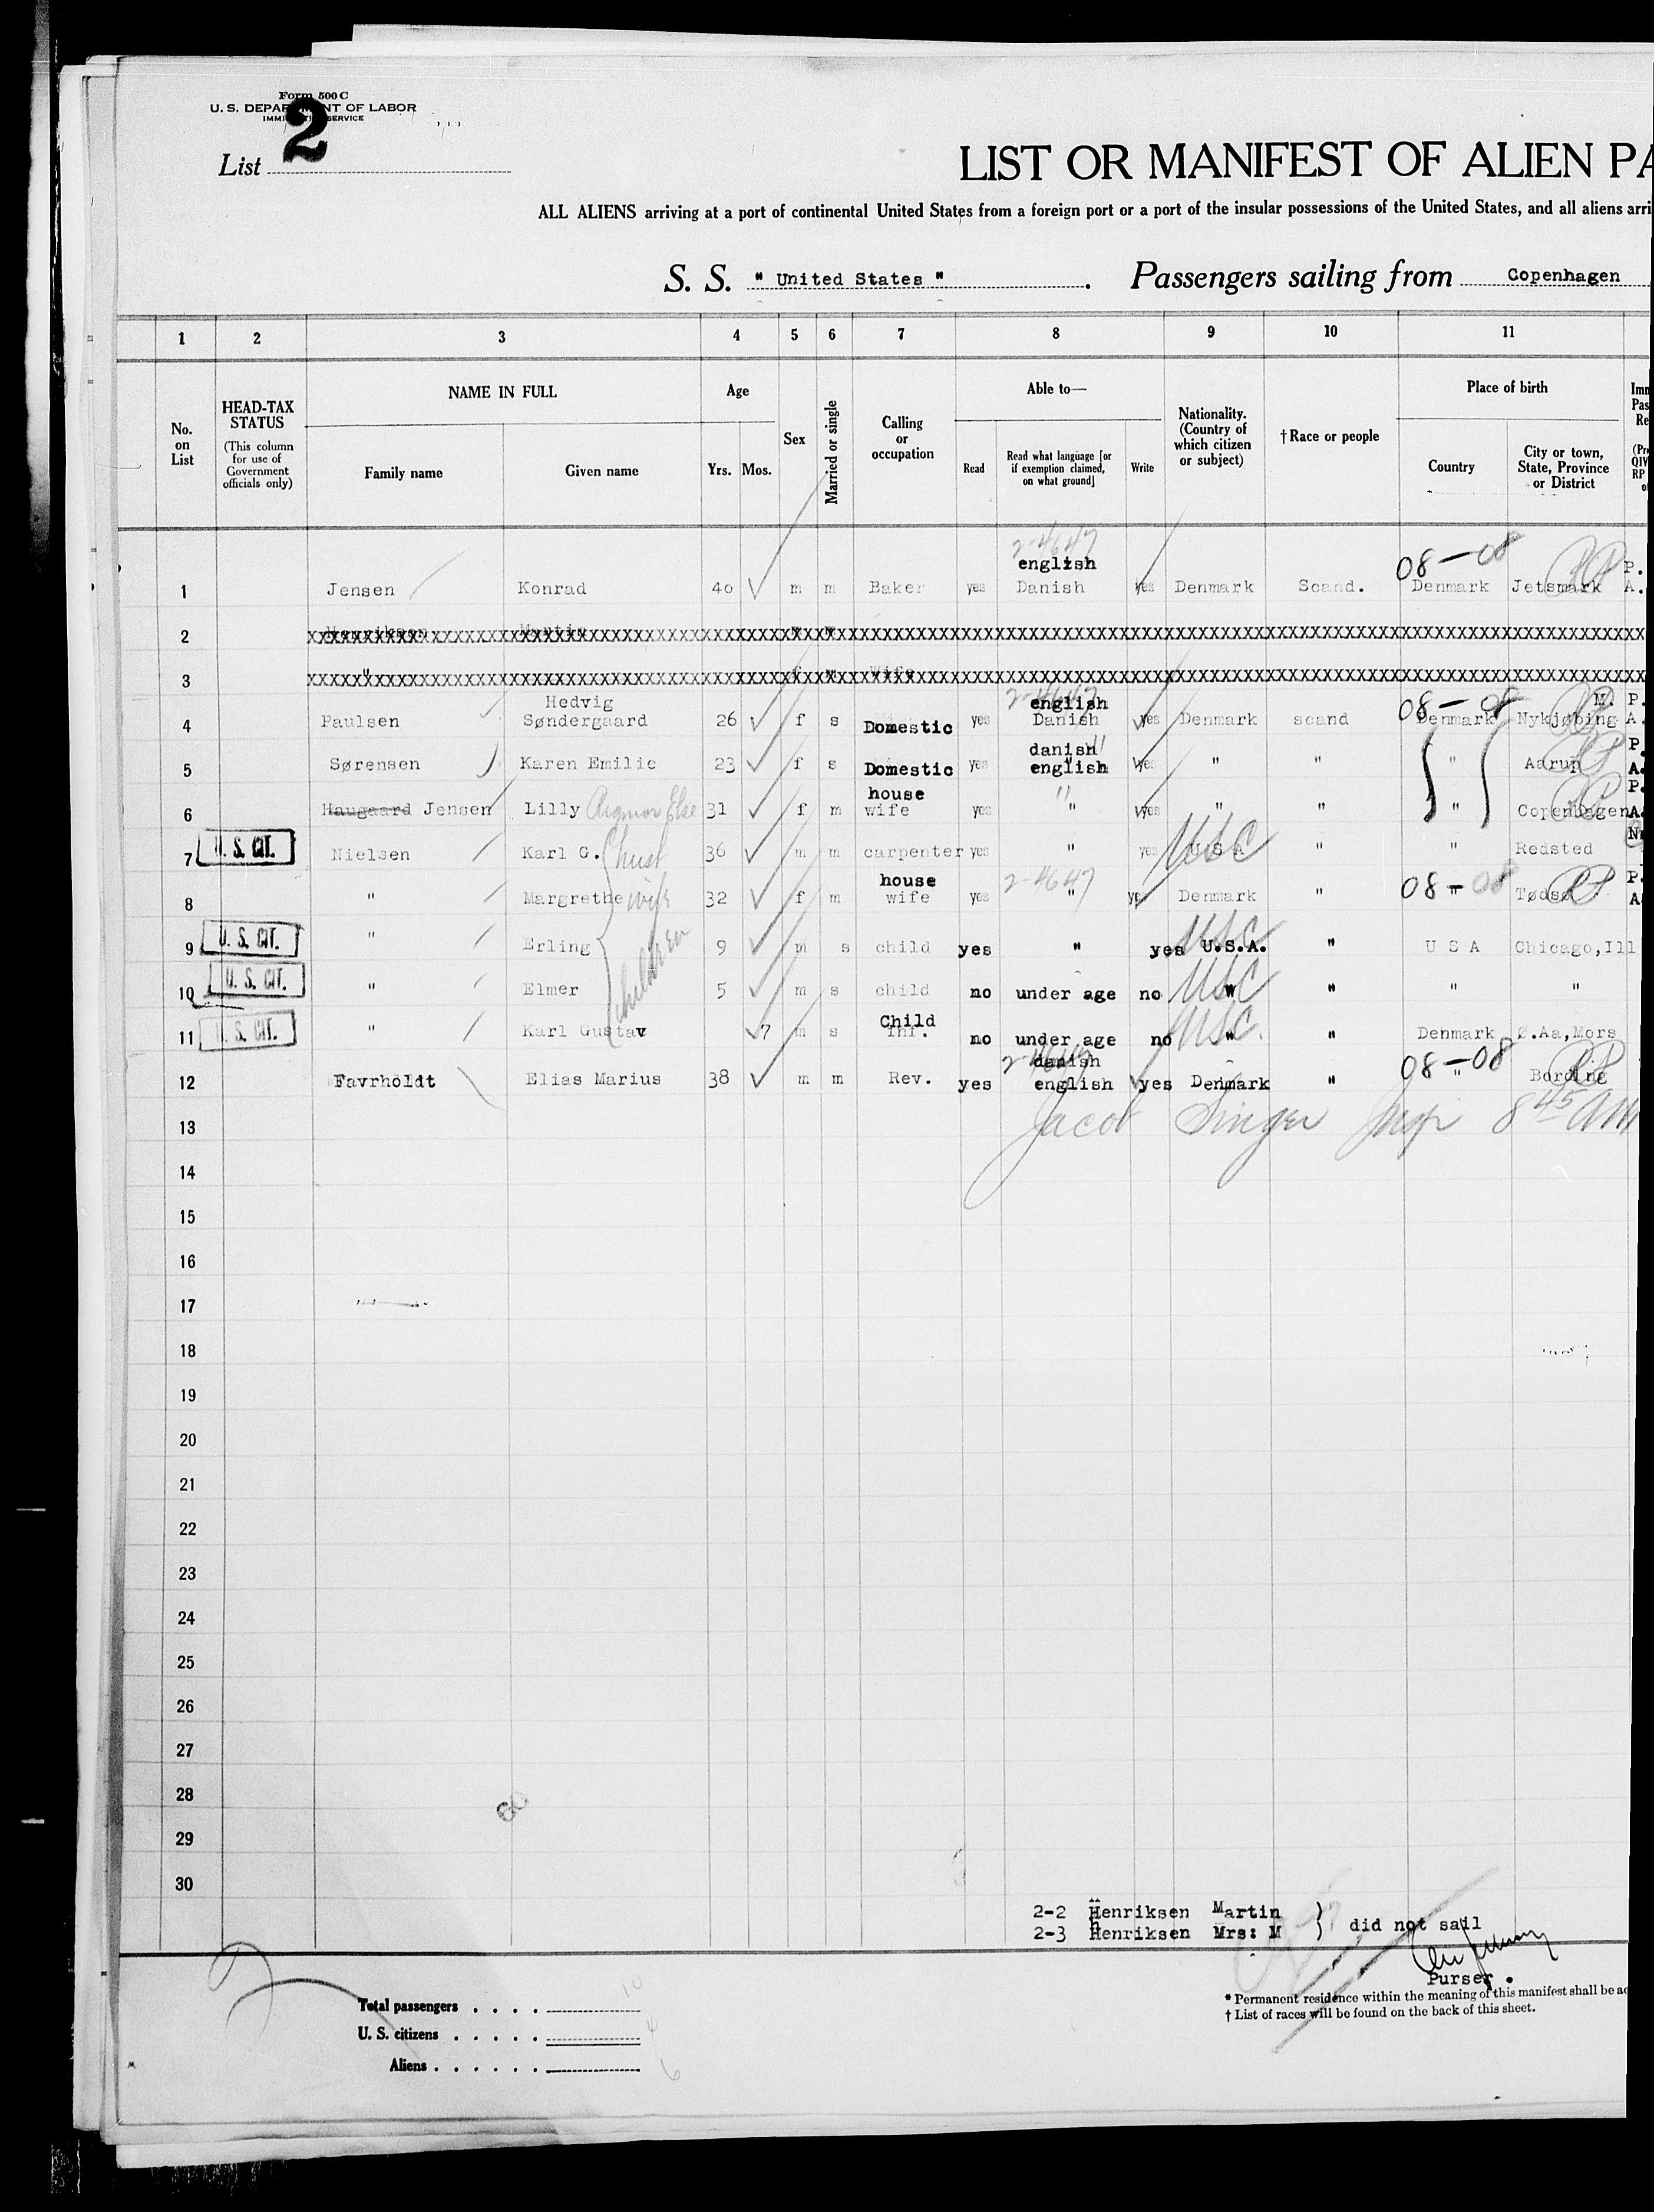 Form 500 C
U. S. DEPARTMENT OF LABOR
IMMIGRATION SERVICE
List 2
LIST OR MANIFEST OF ALIEN PA
ALL ALIENS arriving at a port of continental United States from a foreign port or a port of the insular possessions of the United States, and all aliens arri
S. S. " United States " . Passengers sailing from Copenhagen
1 2 3 4 5 6 7 8 9 10 11
No. on List
HEAD-TAX STATUS
(This column for use of Government officials only)
NAME IN FULL
Family name Given name
Age
Yrs. Mos.
Sex
Married or single
Calling or occupation
Able to—
Read
Read what language [or if exemption claimed, on what ground]
Write
Nationality. (Country of which citizen or subject)
† Race or people
Place of birth
Country
City or town, State, Province or District
2-4647
english
08-08
1 Jensen Konrad 40 m m Baker yes Danish yes Denmark Scand. Denmark Jetsmark
2 Henriksen Martin
3 " f m Wife
Hedvig 2-4647 english 08-08 M. P.
4 Paulsen Søndergaard 26 f s Domestic yes Danish yes Denmark scand Denmark Nykjøbing A.
danish P.
5 Sørensen Karen Emilie 23 f s Domestic yes english yes " " " Aarup A.
house P.
6 Haugaard Jensen Lilly Else 31 f m wife yes " yes " " " Copenhagen A.
7 U. S. CIT. Nielsen Karl G. 36 m m carpenter yes " yes U S A USC " " Redsted
house 2-4647 08-08 P.
8 " Margrethe wife 32 f m wife yes " yes Denmark " " Tødsø A
9 U. S. CIT. " Erling 9 m s child yes " yes U.S.A. USC " U S A Chicago, Ill
children
10 U. S. CIT. " Elmer 5 m s child no under age no " USC " " "
Child
11 U. S. CIT. " Karl Gustav 7 m s Inf. no under age no " USC " Denmark Ø.Aa, Mors
2-4647 danish 08-08
12 Favrholdt Elias Marius 38 m m Rev. yes english yes Denmark " " Bording
13 Jacob Singer Insp 8 45 AM
14
15
16
17
18
19
20
21
22
23
24
25
26
27
28
29
30
2-2 Henriksen Martin
2-3 Henriksen Mrs: M } did not sail
Purser.
Total passengers . . . . 10
U. S. citizens . . . . . 4
Aliens . . . . . . 6
* Permanent residence within the meaning of this manifest shall be ac
† List of races will be found on the back of this sheet.